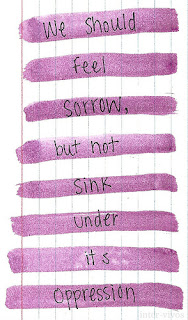 We Should
Feel
Sorrow,
but not
Sink
under
its
Oppression